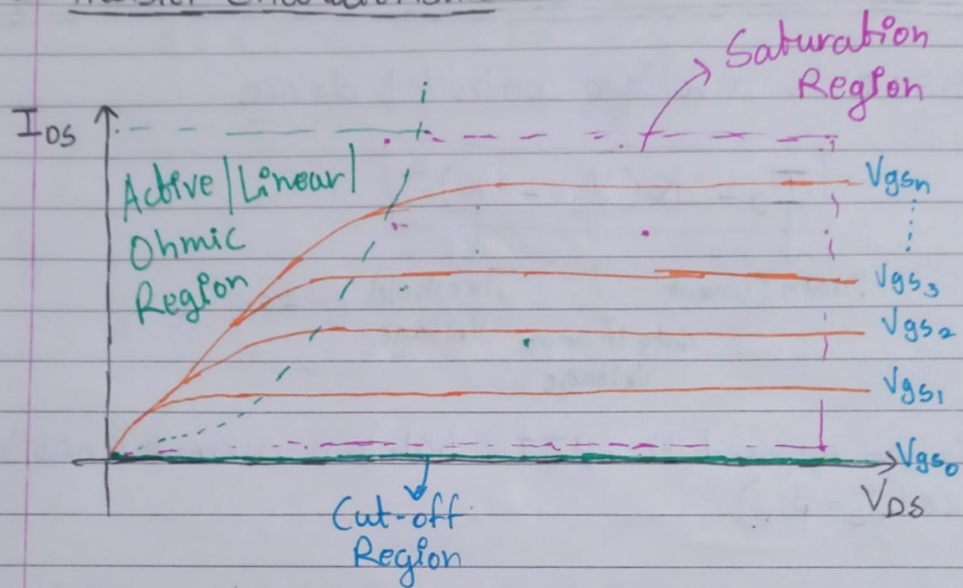 Saturation
Region
I DS
Active/Linear/
Ohmic
Region
Vgsn
Vgs3
Vgs2
Vgs1
Vgs0
VDS
Cut-off
Region